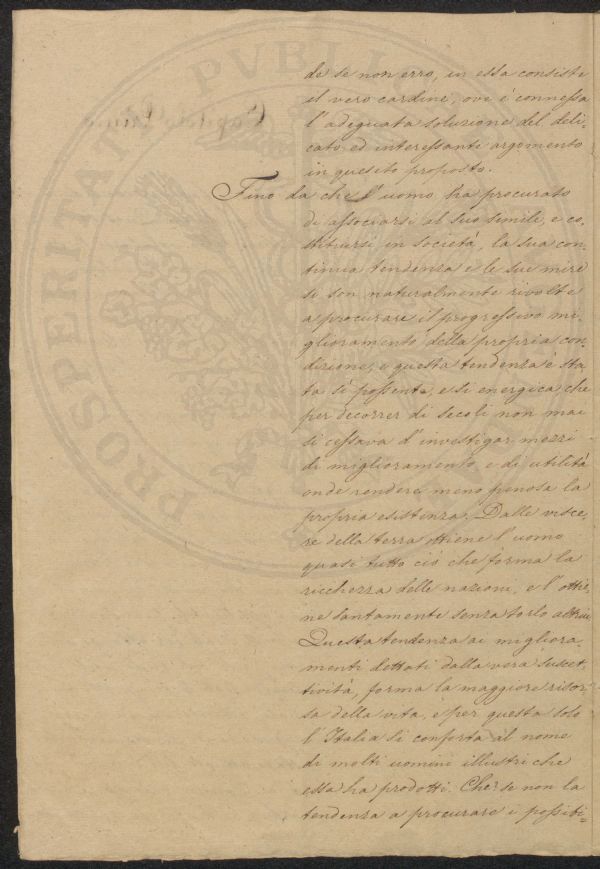 de se non erro, in essa consiste
il vero cardine, ove è connessa
l'adeguata soluzione del deli-
cato ed interessante argomento
in quesito proposto.
Fino da che l'uomo ha procurato
di associarsi al suo simile, e co-
stituirsi in società, la sua con-
tinua tendenza e le sue mire
si son naturalmente rivolte
a procurare il progressivo mi-
glioramento della propria con-
dizione, e questa tendenza è sta-
ta sì possente, e sì energica, che
per decorrer di secoli non mai
si cessava d'investigar mezzi
di miglioramento, e di utilità
onde rendere meno penosa la
propria esistenza. Dalle visce-
re della terra ottiene l'uomo
quasi tutto ciò che forma la
ricchezza delle nazioni, e l'ottie-
ne santamente senza torlo altrui.
Questa tendenza ai migliora-
menti dettati dalla vera suscet-
tività, forma la maggiore risor-
sa della vita, e per questa solo
l'Italia si conforta al nome
di molti uomini illustri che
essa ha prodotti. Che se non la
tendenza a procurare i possibi-
PROSPERITATI PVBLICAE